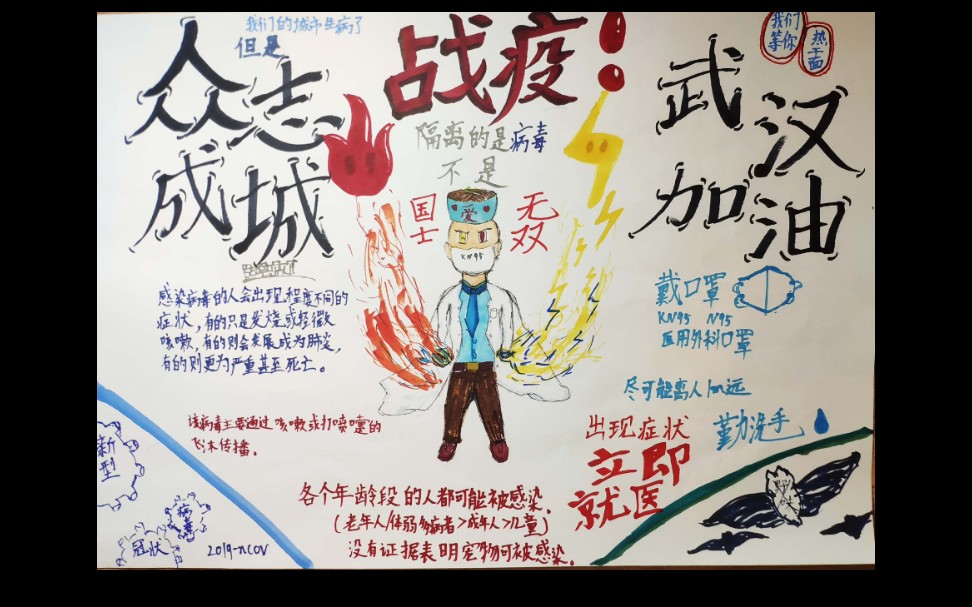 我们的城市生病了
但是
众志
成城
战疫!!
隔离的是病毒
不是
国士
无双
爱
KN95
武汉
加油
我们
等你
热干面
感染病毒的人会出现程度不同的
症状，有的只是发烧或轻微
咳嗽，有的则会发展成为肺炎，
有的则更为严重甚至死亡。
该病毒主要通过咳嗽或打喷嚏的
飞沫传播。
戴口罩
KN95 N95
医用外科口罩
尽可能离人1m远
勤洗手
出现症状
立即
就医
各个年龄段的人都可能被感染。
(老年人/体弱多病者>成年人>儿童)
没有证据表明宠物可被感染。
新型
冠状
病毒
2019-nCOV